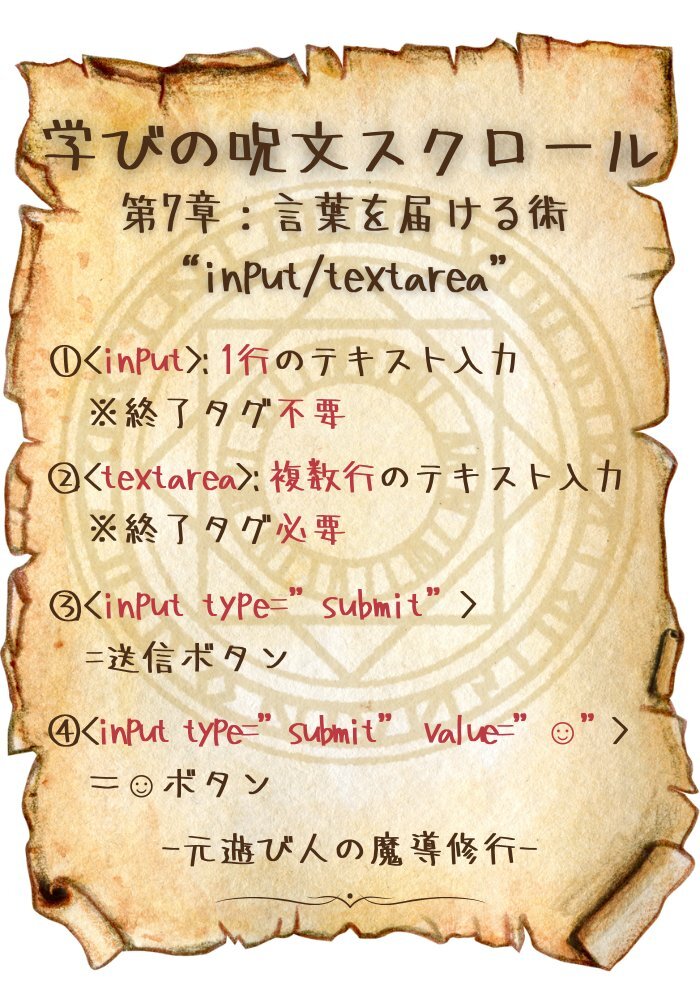 学びの呪文スクロール
第7章：言葉を届ける術
“input/textarea”
①<input>: 1行のテキスト入力
※終了タグ不要
②<textarea>: 複数行のテキスト入力
※終了タグ必要
③<input type=”submit”>
=送信ボタン
④<input type=”submit” value=”☺”>
＝☺ボタン
-元遊び人の魔導修行-